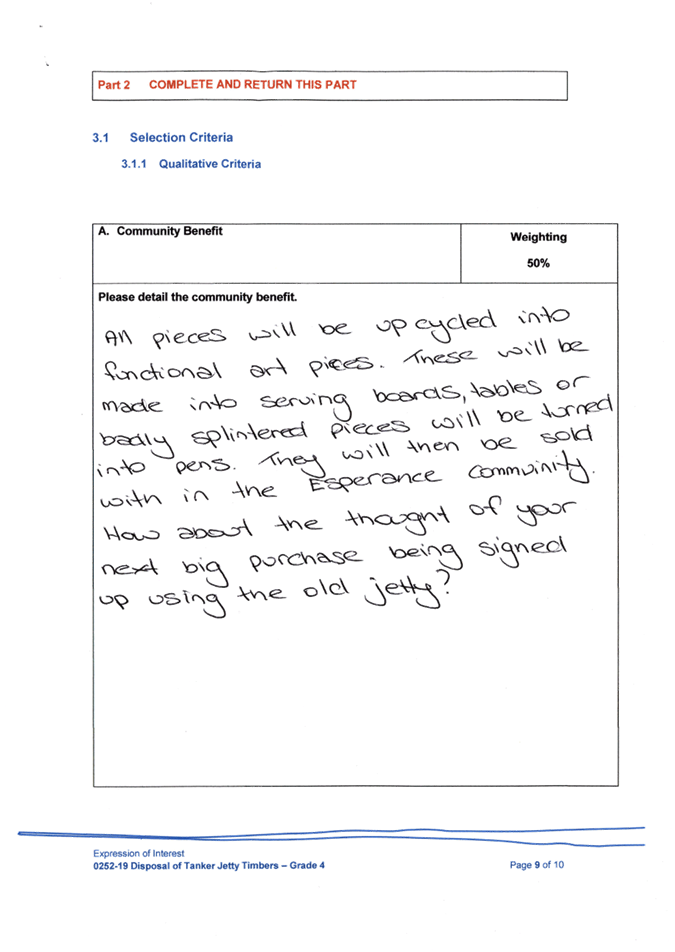 Part 2 COMPLETE AND RETURN THIS PART
3.1 Selection Criteria
3.1.1 Qualitative Criteria
A. Community Benefit
Weighting
50%
Please detail the community benefit.
All pieces will be up cycled into
functional art pieces. These will be
made into serving boards, tables or
badly splintered pieces will be turned
into pens. They will then be sold
with in the Esperance Community.
How about the thought of your
next big purchase being signed
up using the old jetty?
Expression of Interest
0252-19 Disposal of Tanker Jetty Timbers – Grade 4
Page 9 of 10